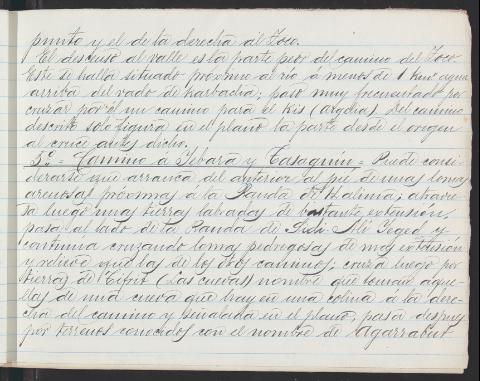 punto y el de la derecha al Zoco.
El descenso al valle es la parte peor del camino del Zoco.
Este se halla situado próximo al rio á menos de 1 km. agua
arriba del vado de Karbacha; paso muy frecuentado por
cruzar por él un camino para el Kis (Argelia) Del camino
descrito solo figura en el plano la parte desde el origen
al cruce antes dicho.
5º = Camino a Sebará y Tasaguin = Puede consi
derarse que arranca del anterior al pié de unas lomas
arenosas próximas á la Randa de Halima; atravie
sa luego unas tierras labradas de bastante extensión,
pasa al lado de la Randa de Sidi Ali y
continua cruzando lomas pedregosas de mas extensión
y relieve que las de los otros caminos; cruza luego por
tierras de Tifrit (Las cuevas) nombre que toman aque-
llas de una cueva que hay en una colina á la dere-
cha del camino y señalada en el plano; pasa despues
por terrenos conocidos con el nombre de Agarrabut